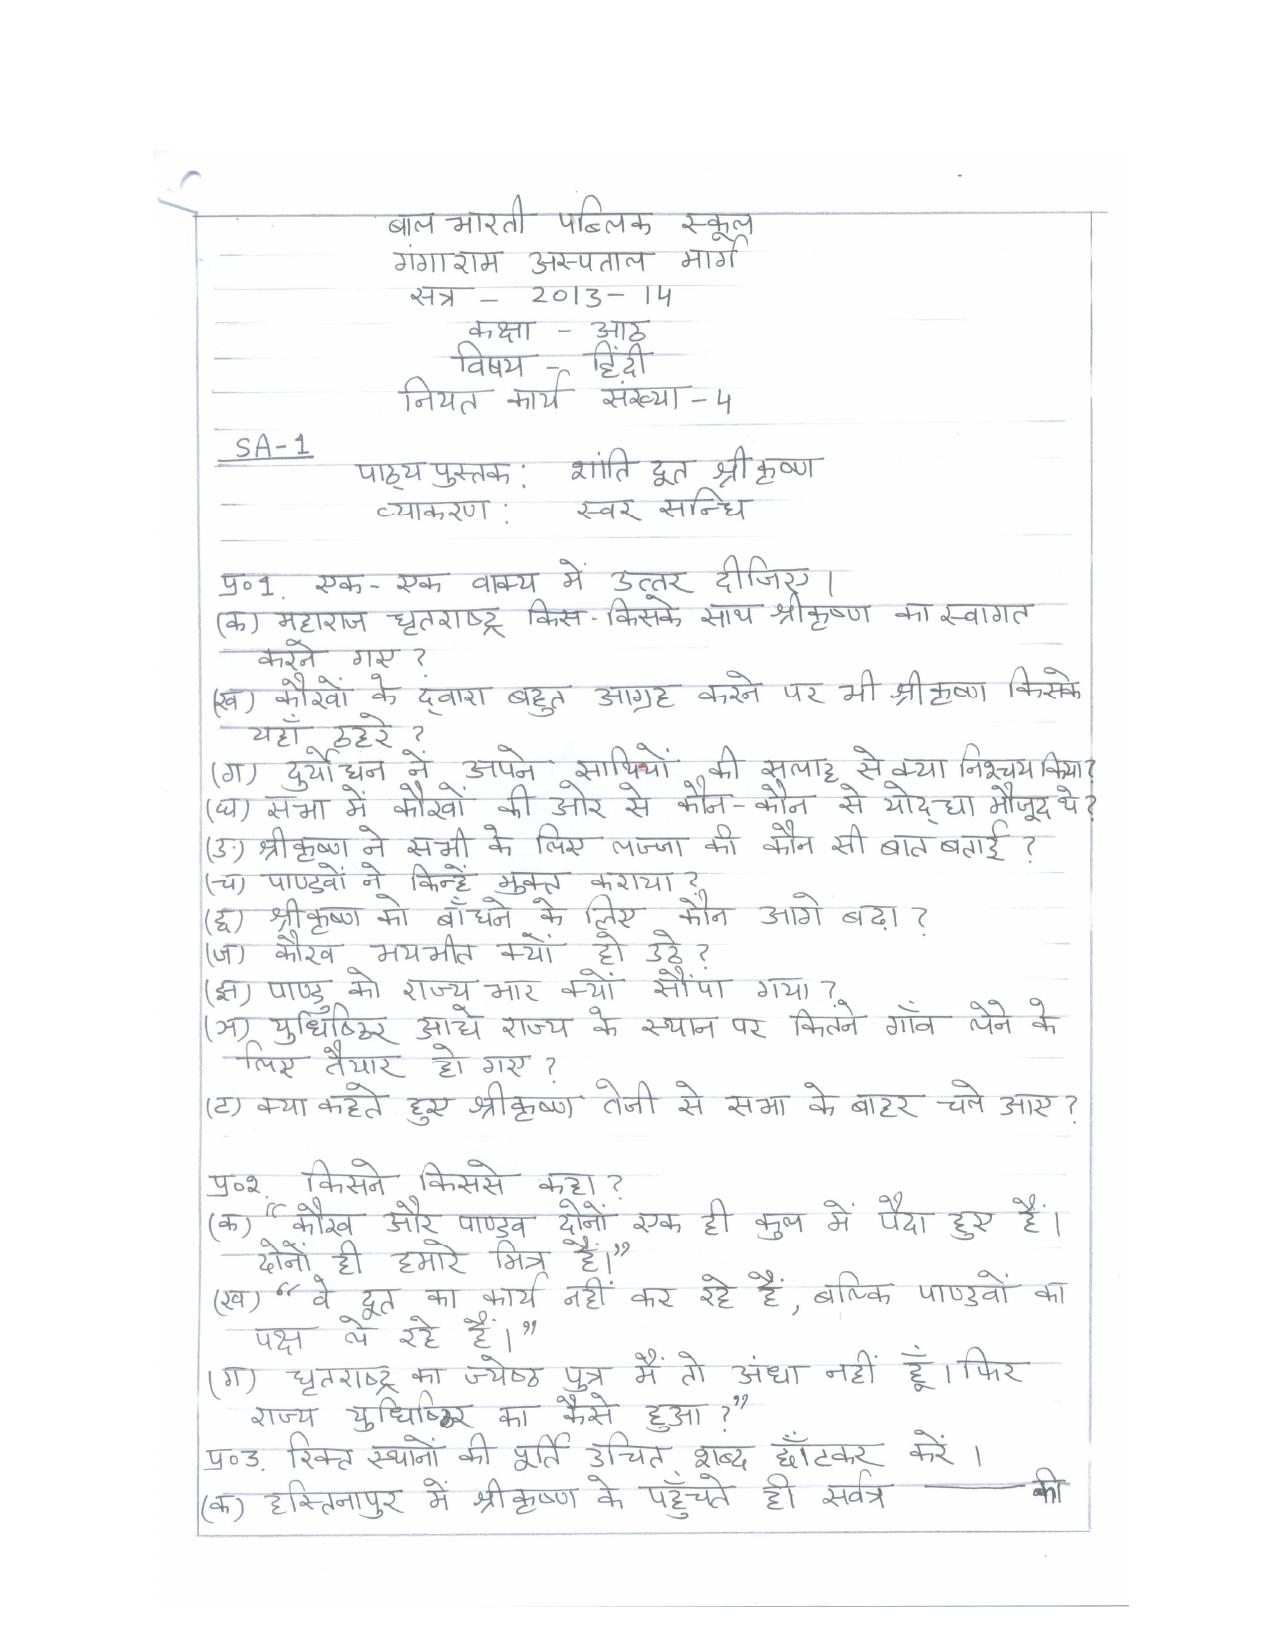 बाल भारती पब्लिक स्कूल
गंगाराम अस्पताल मार्ग
सत्र - 2013-14
कक्षा - आठ
विषय - हिंदी
नियत कार्य संख्या - 4
SA-1
पाठ्य पुस्तक : शांति दूत श्रीकृष्ण
व्याकरण : स्वर सन्धि
प्र॰1. एक-एक वाक्य में उत्तर दीजिए।
(क) महाराज धृतराष्ट्र किस-किसके साथ श्रीकृष्ण का स्वागत
करने गए ?
(ख) कौरवों के द्वारा बहुत आग्रह करने पर भी श्रीकृष्ण किसके
यहाँ ठहरे ?
(ग) दुर्योधन नें अपने साथियों की सलाह से क्या निश्चय किया?
(घ) सभा में कौरवों की ओर से कौन-कौन से योद्धा मौजूद थे?
(ङ) श्रीकृष्ण ने सभी के लिए लज्जा की कौन सी बात बताई ?
(च) पाण्डवों ने किन्हें मुक्त कराया?
(छ) श्रीकृष्ण को बाँधने के लिए कौन आगे बढ़ा ?
(ज) कौरव भयभीत क्यों हो उठे ?
(झ) पाण्डु को राज्य भार क्यों सौंपा गया ?
(ञ) युधिष्ठिर आधे राज्य के स्थान पर कितने गाँव लेने के
लिए तैयार हो गए ?
(ट) क्या कहते हुए श्रीकृष्ण तेजी से सभा के बाहर चले आए ?
प्र॰२. किसने किससे कहा ?
(क) “कौरव और पाण्डव दोनों एक ही कुल में पैदा हुए हैं।
दोनों ही हमारे मित्र हैं।”
(ख) “वे दूत का कार्य नहीं कर रहे हैं, बल्कि पाण्डवों का
पक्ष ले रहे हैं।”
(ग) धृतराष्ट्र का ज्येष्ठ पुत्र मैं तो अंधा नहीं हूँ। फिर
राज्य युधिष्ठिर का कैसे हुआ ?”
प्र॰3. रिक्त स्थानों की पूर्ति उचित शब्द छाँटकर करें ।
(क) हस्तिनापुर में श्रीकृष्ण के पहुँचते ही सर्वत्र ——— की